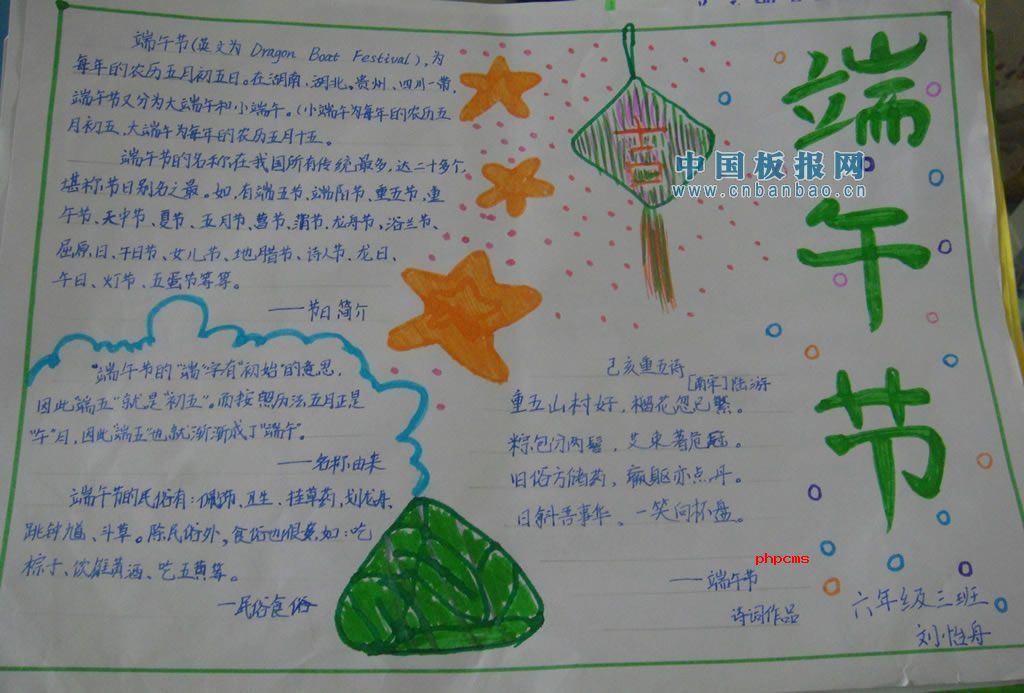 端午节(英文为 Dragon Boat Festival),为
每年的农历五月初五日。在湖南、湖北、贵州、四川一带,
端午节又分为大端午和小端午。(小端午为每年的农历五
月初五、大端午为每年的农历五月十五。
端午节的名称在我国所有传统最多,达二十多个,
堪称节日别名之最。如,有端五节、端阳节、重五节、重
午节、天中节、夏节、五月节、菖节、蒲节、龙舟节、浴兰节、
屈原日、午日节、女儿节、地腊节、诗人节、龙日、
午日、灯节、五蛋节等等。
——节日简介
"端午节的"端"字有"初始"的意思,
因此"端五"就是"初五"。而按照历法五月正是
"午"月,因此端五"也就渐渐成了"端午"。
——名称由来
端午节的民俗有:佩饰、卫生、挂草药,划龙舟,
跳钟馗、斗草。除民俗外,食俗也很多,如:吃
棕子、饮雄黄酒、吃五黄等。
—民俗食俗
中国板报网
www.cnbanbao.cn
己亥重五诗
[南宋]陆游
重五山村好,榴花忽已繁。
粽包分两髻,艾束著危冠。
旧俗方储药,羸躯亦点丹。
日斜吾事毕、一笑向杯盘。
phpcms
——端午节
诗词作品
端午节
六年级三班
刘怡舟